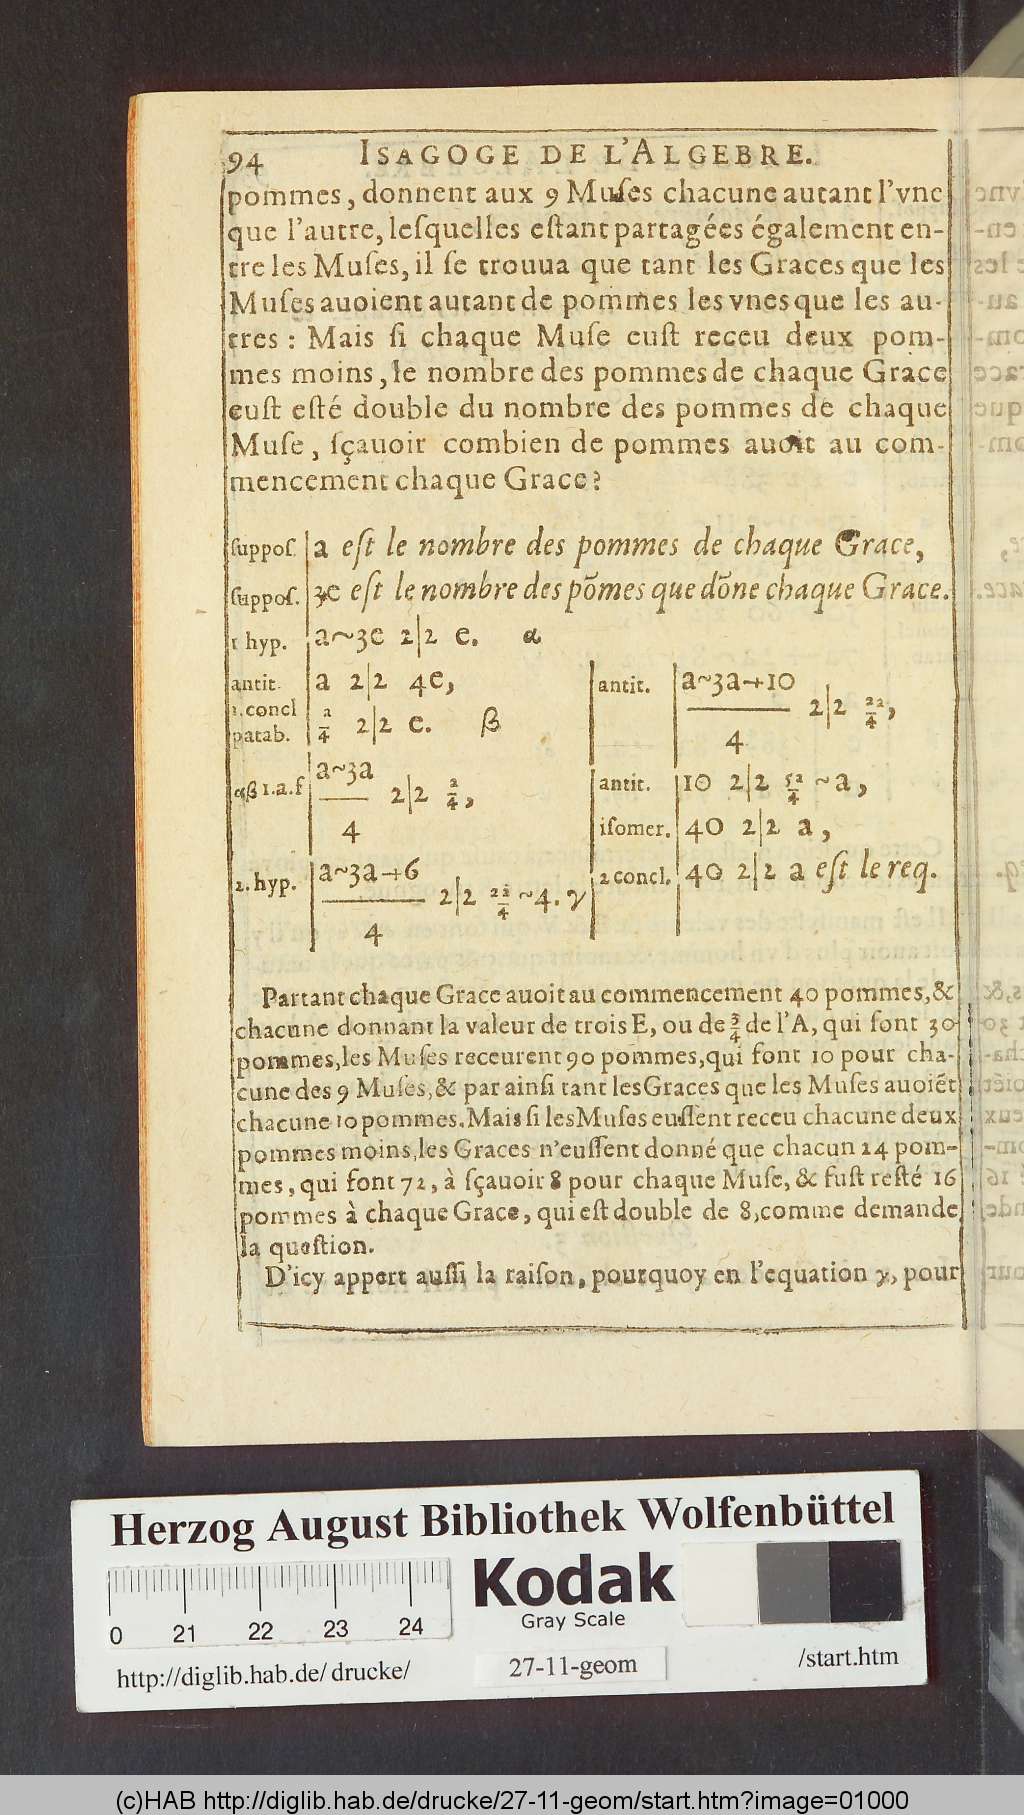 94 ISAGOGE DE L'ALGEBRE.
pommes, donnent aux 9 Muſes chacune autant l'vne
que l'autre, leſquelles eſtant partagées également en-
tre les Muſes, il ſe trouua que tant les Graces que les
Muſes auoient autant de pommes les vnes que les au-
tres : Mais ſi chaque Muſe euſt receu deux pom-
mes moins, le nombre des pommes de chaque Grace
euſt eſté double du nombre des pommes de chaque
Muſe, ſçauoir combien de pommes auoit au com-
mencement chaque Grace?
ſuppoſ. a eſt le nombre des pommes de chaque Grace,
ſuppoſ. 3e eſt le nombre des põmes que dõne chaque Grace.
1 hyp. a~3e 2|2 e. α
antit. a 2|2 4e,
1. concl
parab. a/4 2|2 e. β
αβ 1.a.f a~3a/4 2|2 a/4,
2. hyp. a~3a+6/4 2|2 2a/4 ~4. γ
antit. a~3a+10/4 2|2 2a/4,
antit. 10 2|2 5a/4 ~a,
iſomer. 40 2|2 a,
2 concl. 40 2|2 a eſt le req.
Partant chaque Grace auoit au commencement 40 pommes, &
chacune donnant la valeur de trois E, ou de 3/4 de l'A, qui font 30
pommes, les Muſes receurent 90 pommes, qui font 10 pour cha-
cune des 9 Muſes, & par ainſi tant les Graces que les Muſes auoiẽt
chacune 10 pommes. Mais ſi les Muſes euſſent receu chacune deux
pommes moins, les Graces n'euſſent donné que chacun 24 pom-
mes, qui font 72, à ſçauoir 8 pour chaque Muſe, & fuſt reſté 16
pommes à chaque Grace, qui eſt double de 8, comme demande
la queſtion.
D'icy appert auſſi la raiſon, pourquoy en l'equation γ, pour
Herzog August Bibliothek Wolfenbüttel
0 21 22 23 24
Kodak
Gray Scale
http://diglib.hab.de/ drucke/ 27-11-geom /start.htm
(c)HAB http://diglib.hab.de/drucke/27-11-geom/start.htm?image=01000